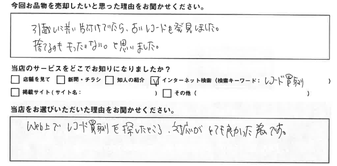 今回お品物を売却したいと思った理由をお聞かせください。
引越しに伴い片付けていたら、古いレコードを発見しました。
捨てるのももったいないと思いました。
当店のサービスをどこでお知りになりましたか？
□ 店舗を見て □ 新聞・チラシ □ 知人の紹介 ☑ インターネット検索（検索キーワード：レコード買取）
□ 掲載サイト（サイト名： ） □ その他（ ）
当店をお選びいただいた理由をお聞かせください。
Web上でレコード買取を探したところ、対応がとても良かった為です。